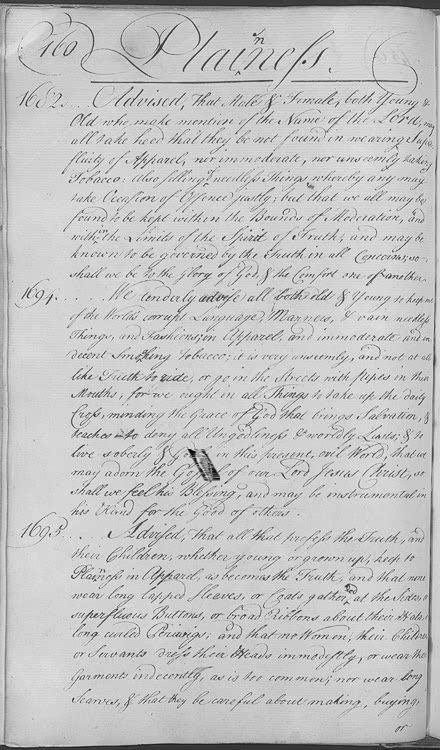 160 Plainness.
1682... Advised, that Male & Female, both Young &
Old who make mention of the Name of the Lord, may
all take heed that they be not found in wearing Supe
fluity of Apparel, nor immoderate, nor unseemly taking
Tobacco: Also selling needless Things whereby any may
take Occasion of Offence justly; but that we all may be
found to be kept within the Bounds of Moderation, and
within the Limits of the Spirit of Truth, and may be
known to be governed by the Truth in all Concerns, so
shall we be to the Glory of God, & the Comfort one of another.
1694..... We tenderly advise all both old & Young to keep out
of the World's corrupt Language, Manners, & vain needless
Things, and Fashions, in Apparel; and immoderate and in
decent Smoking Tobacco; it is very unseemly, and not at all
like Truth to ride, or go in the Streets with pipes in their
Mouths, for we ought in all Things to take up the daily
Cross, minding the Grace of God that brings Salvation, &
teaches to deny all Ungodliness & worldly Lusts; & to
live soberly & in this present, evil World, that we
may adorn the of our Lord Jesus Christ, so
shall we feel his Blessing, and may be instrumental in
his Hand for the Good of others.
1695... Advised, that all that profess the Truth, and
their Children, whether young or grown up, keep to
Plainness in Apparel, as becomes the Truth, and that none
wear long lapped Sleeves, or Coats gathered at the Sides, or
superfluous Buttons, or broad Ribbons about their Hats, or
long curled Periwigs; and that no Women, their Children
or Servants dress their Heads immodestly, or wear their
Garments indecently, as is too common; nor wear long
Scarves, & that they be careful about making, buying,
or